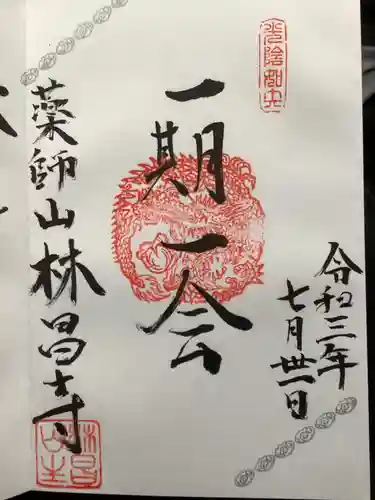 光陰如矢
令和三年
七月卅一日
一期一会
薬師山林昌寺